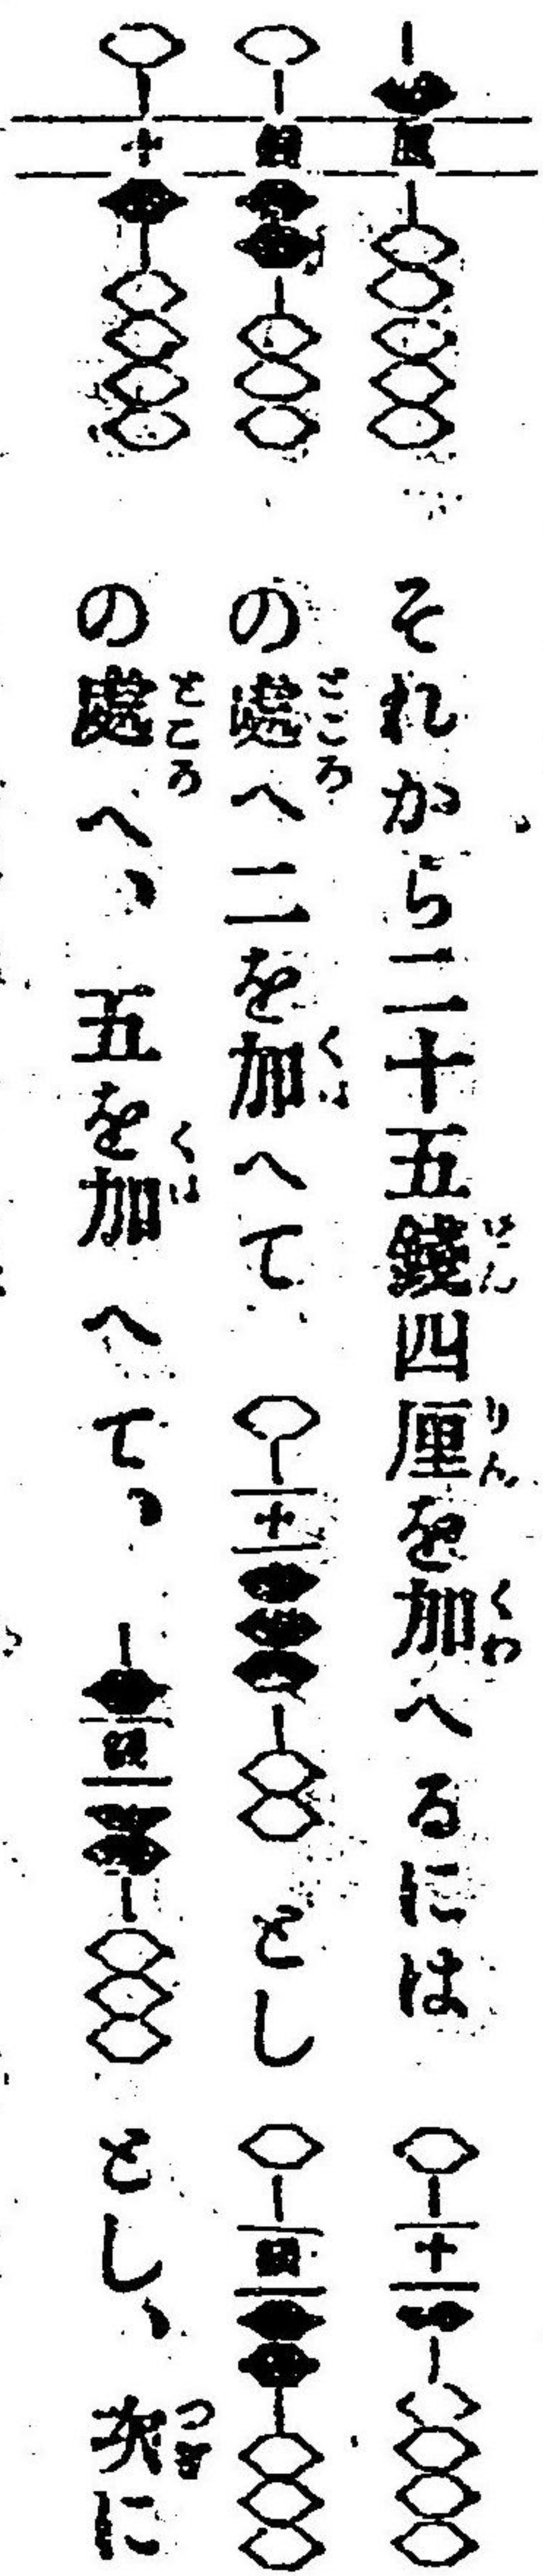 それから二十五錢四厘を加へるには 十
の處へ二を加へて 十 とし 錢
の處へ、五を加へて、 錢 とし、次に